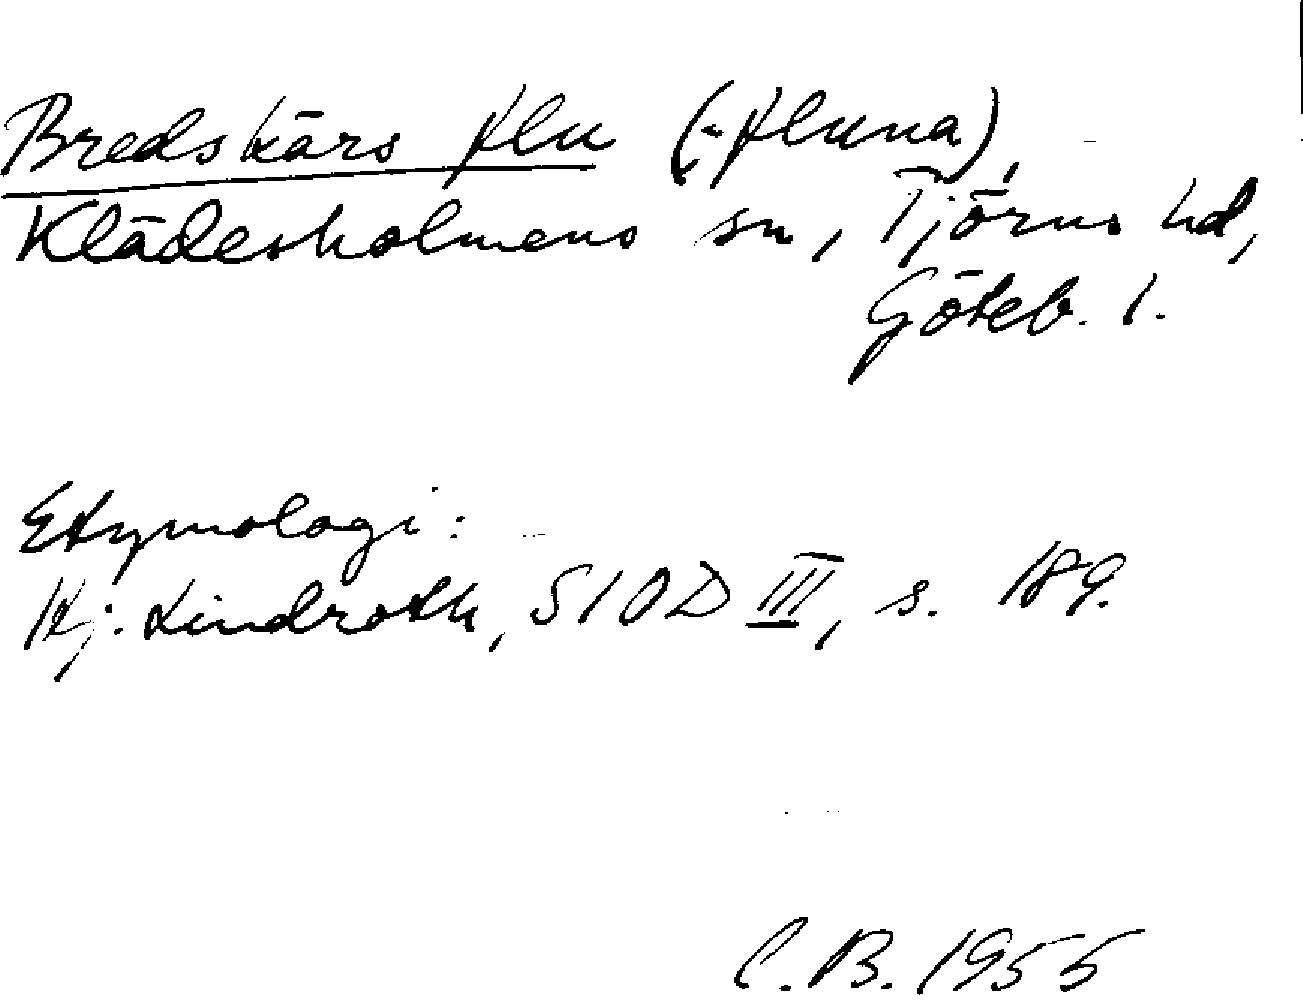 Bredskärs flu (-fluna),
Klädesholmens sn, Tjörns hd,
Göteb. l.
Etymologi:
Hj. Lindroth, SIOD III, s. 189.
C.B. 1955